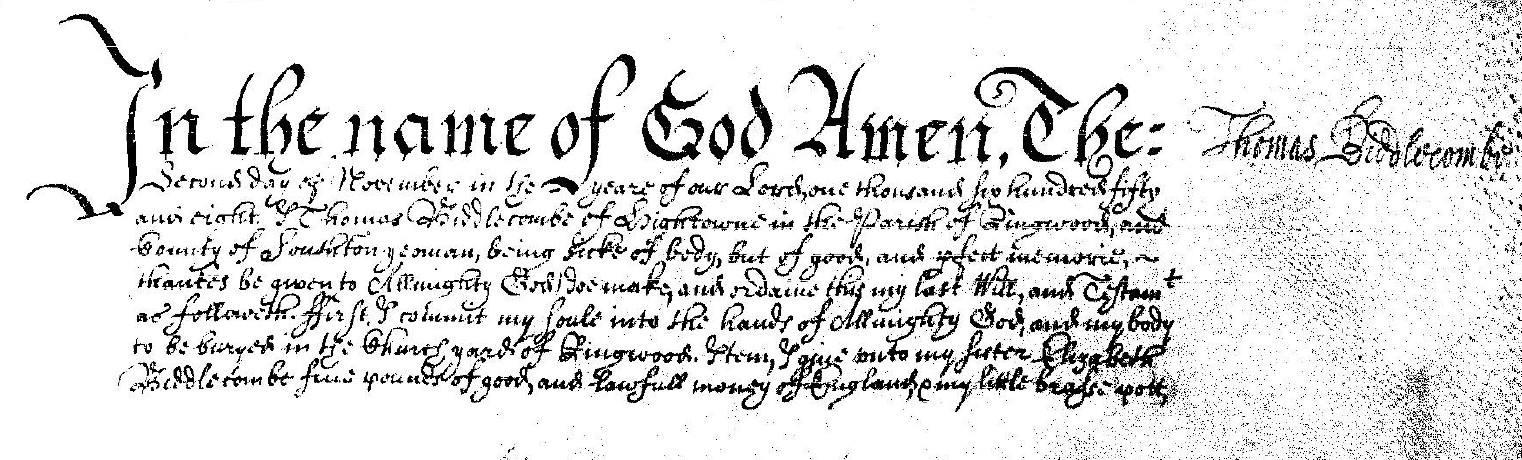 In the name of God Amen, The= Thomas Biddlecombe
Second day of November in the yeare of our Lord, one thousand six hundred fifty
and eight. I Thomas Biddlecombe of Hightowne in the Parish of Ringwood, and
County of Southton yeoman, being sicke of body, but of good, and pfect memorie, ~
thankes be given to Allmighty God, doe make, and ordaine this my last Will, and Testamt
as followeth. ffirst, I commit my soule into the hands of Allmighty God, and my body
to be buryed in the Church yard of Ringwood. Item, I give unto my sister Elizabeth
Biddlecombe five pounds of good, and lawfull money of England, & my little brasse pott,